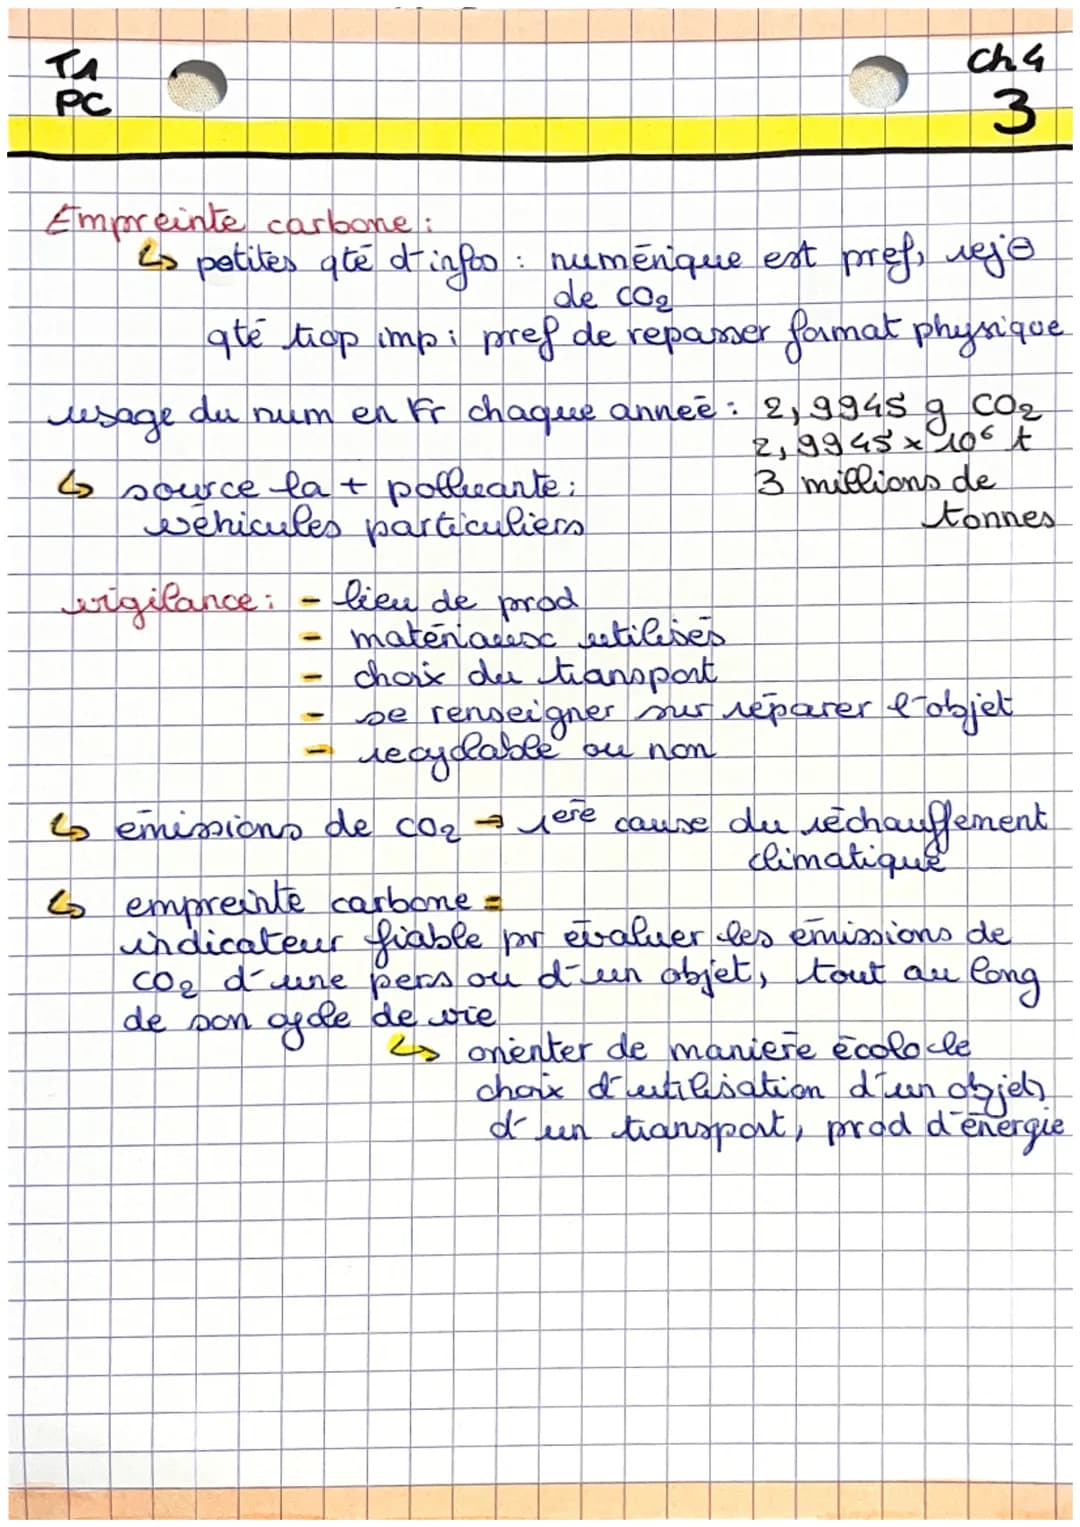 T1
PC
Ch 4
3
Empreinte carbone :
↳ petites qté d'infos : numérique est pref, rej⊖
de CO2
qté trop imp : pref de repasser format physique
usage du num en Fr chaque année : 2,9945 g CO2
2,9945 x 10⁶ t
3 millions de
tonnes
↳ source la + polluante :
véhicules particuliers
vigilance : - lieu de prod
- matériaux utilisés
- choix du transport
- se renseigner sur réparer l'objet
- recyclable ou non
↳ émissions de CO2 → 1ère cause du réchauffement
climatique
↳ empreinte carbone =
indicateur fiable pr évaluer les émissions de
CO2 d'une pers ou d'un objet, tout au long
de son cycle de vie
↳ orienter de manière écolo le
choix d'utilisation d'un objet,
d'un transport, prod d'énergie